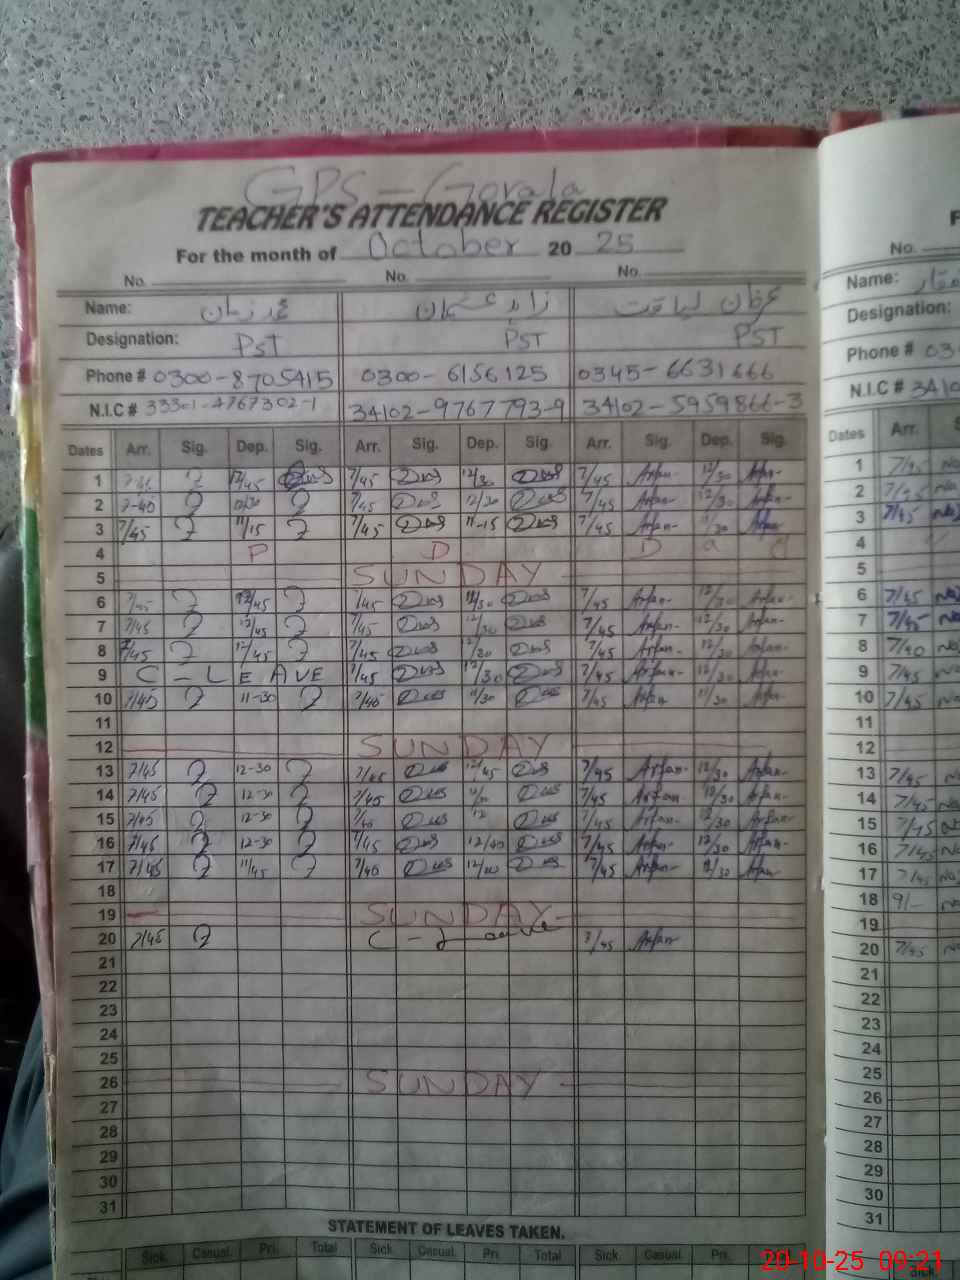 GPS - Gorala
TEACHER'S ATTENDANCE REGISTER
For the month of October 20 25
No. No. No. No.
Name: محمد زمان زاہد عثمان عرفان لیاقت Name:
Designation: PST PST PST Designation:
Phone # 0300-8705415 0300-6156125 0345-6631666 Phone # 03
N.I.C # 33301-4767302-1 34102-9767793-9 34102-5959866-3 N.I.C # 3410
Dates Arr. Sig. Dep. Sig. Arr. Sig. Dep. Sig. Arr. Sig. Dep. Sig. Dates Arr.
1 12/45 7/45 12/30 7/45 Arfan 12/30 Arfan 1 7/45
2 7-40 12/30 7/45 12/30 7/45 Arfan 12/30 Arfan 2 7/45
3 7/45 11/15 7/45 11-15 7/45 Arfan 11/30 Arfan 3 7/45
4 P D D a d 4
5 SUNDAY 5
6 7/45 12/45 7/45 12/30 7/45 Arfan 12/30 Arfan 6 7/45
7 7/45 12/45 7/45 12/30 7/45 Arfan 12/30 Arfan 7 7/45
8 7/45 12/45 7/45 12/30 7/45 Arfan 12/30 Arfan 8 7/40
9 C - LEAVE 7/45 12/30 7/45 Arfan 12/30 Arfan 9 7/45
10 7/45 11-30 7/40 11/30 7/45 Arfan 11/30 Arfan 10 7/45
11 11
12 SUNDAY 12
13 7/45 12-30 7/45 12/45 7/45 Arfan 12/30 Arfan 13 7/45
14 7/45 12-30 7/45 7/45 Arfan 12/30 Arfan 14 7/45
15 7/45 12-30 7/40 12 7/45 Arfan 12/30 Arfan 15 7/45
16 7/45 12-30 7/45 12/40 7/45 Arfan 12/30 Arfan 16 7/45
17 7/45 11/45 7/40 7/45 Arfan 11/30 Arfan 17 7/45
18 18 9/-
19 SUNDAY 19
20 7/45 C - Leave 7/45 Arfan 20 7/45
21 21
22 22
23 23
24 24
25 25
26 SUNDAY 26
27 27
28 28
29 29
30 30
31 31
STATEMENT OF LEAVES TAKEN.
Sick. Casual. Pri. Total Sick. Casual. Pri. Total Sick. Casual. Pri. Sick.
20-10-25 09:21